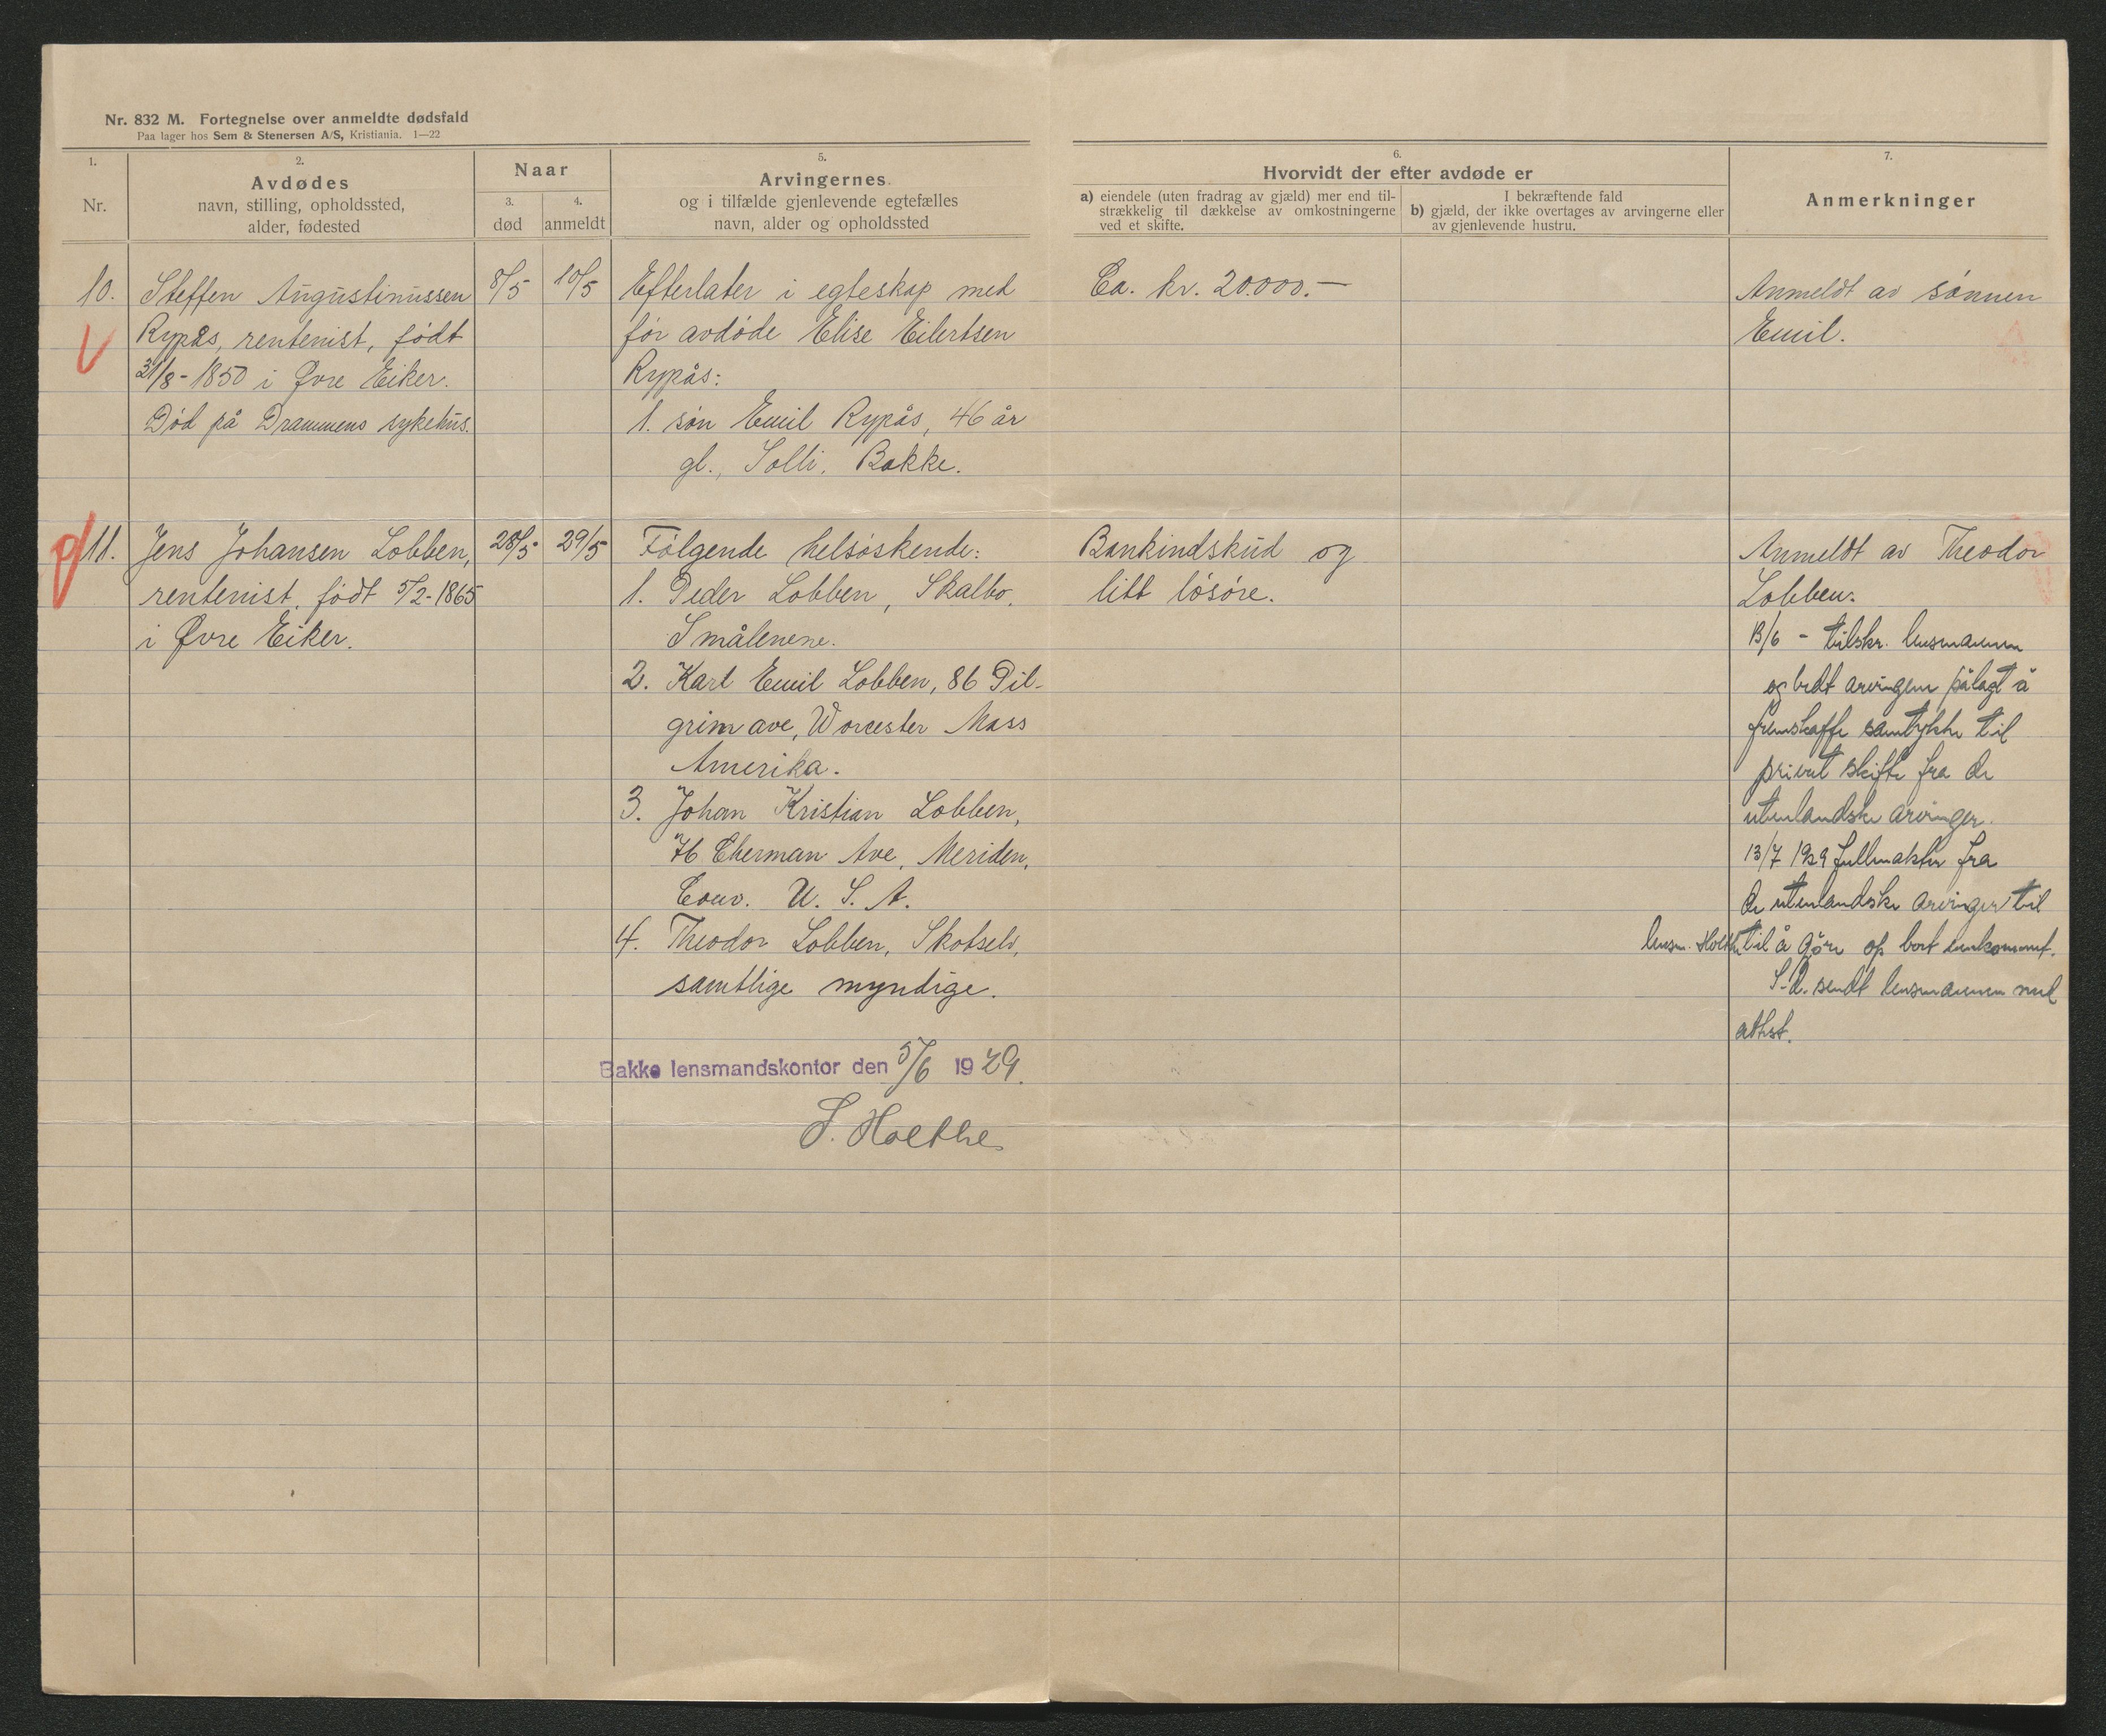 Nr. 832 M. Fortegnelse over anmeldte dødsfald
Paa lager hos Sem & Stenersen A/S, Kristiania. 1—22
1.
Nr.
2.
Avdødes
navn, stilling, opholdssted,
alder, fødested
Naar
3.
død
4.
anmeldt
5.
Arvingernes
og i tilfælde gjenlevende egtefælles
navn, alder og opholdssted
6.
Hvorvidt der efter avdøde er
a) eiendele (uten fradrag av gjæld) mer end til-
strækkelig til dækkelse av omkostningerne
ved et skifte.
I bekræftende fald
b) gjæld, der ikke overtages av arvingerne eller
av gjenlevende hustru.
7.
Anmerkninger
10.
Steffen Augustinussen
Rypås, rentenist, født
31/8-1850 i Øvre Eiker.
Død på Drammens sykehus.
8/5
10/5
Efterlater i egteskap med
før avdøde Elise Eilertsen
Rypås:
1. søn Emil Rypås, 46 år
gl., Solli, Bakke.
Ca. kr. 20.000.—
Anmeldt av sønnen
Emil.
11.
Jens Johansen Lobben,
rentenist, født 5/2-1865
i Øvre Eiker.
28/5
29/5
Følgende helsøskende:
1. Peder Lobben, Skalbo,
Smålenene.
2. Karl Emil Lobben, 86 Pil-
grim ave, Worcester Mass
Amerika.
3. Johan Kristian Lobben,
76 Eherman Ave, Meriden,
Conv. U. S. A.
4. Theodor Lobben, Skotselv,
samtlige myndige.
Bankindskud og
litt løsøre.
Anmeldt av Theodor
Lobben.
13/6 - tilskr. lensmannen
og bedt arvingene pålagt å
fremskaffe samtykke til
privat skifte fra de
utenlandske arvinger.
13/7 1929 fullmakter fra
de utenlandske arvinger til
lensm. Holthe til å gjøre op bort innkommet.
S.d. sendt lensmannen med
attest.
Bakke lensmandskontor den 5/6 1929.
S. Holthe